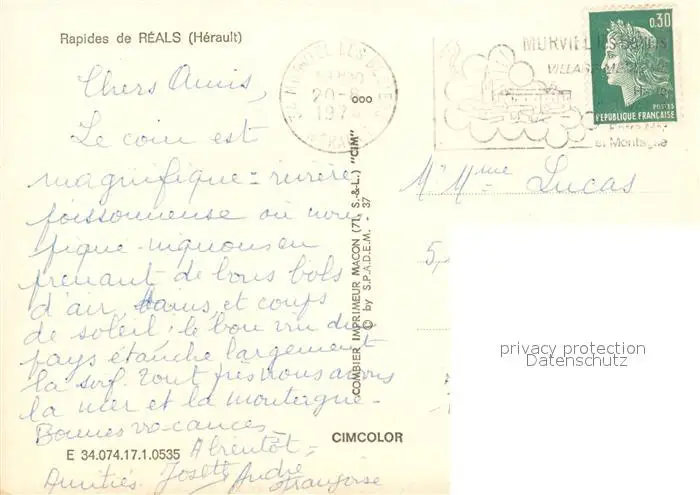 Rapides de RÉALS (Hérault)
Chers Amis,
Le coin est
magnifique = rivière
poissonneuse où nous
pique-niquons en
prenant de bons bols
d'air, bains, et coups
de soleil; le bon vin du
pays étanche largement
la soif. Tout près nous avons
la mer et la montagne -
Bonnes vacances -
A bientôt -
Amitiés. Josette André
Françoise
E 34.074.17.1.0535
CIMCOLOR
COMBIER IMPRIMEUR MACON (71, S.-&-L.) "CIM"
© by S.P.A.D.E.M. - 37
20-8
197
MURVIEL LES BEZIERS
et Montagne
0,30
POSTES
REPUBLIQUE FRANÇAISE
Mr Mme Lucas
5,
privacy protection
Datenschutz